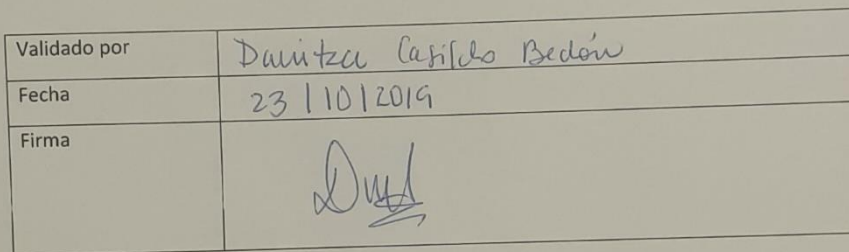 Validado por Danitza Casildo Bedón
Fecha 23 | 10 | 2019
Firma